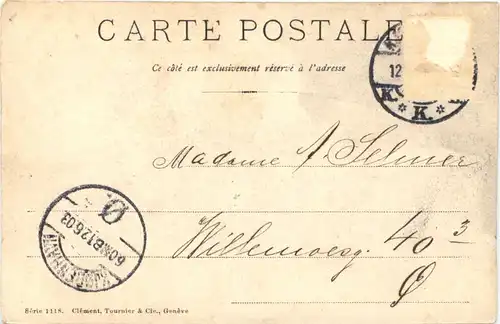 CARTE POSTALE
Ce côté est exclusivement réservé à l'adresse
12
K. * K. *
Madame A. Selmer
Willemoesg. 40³
Ø
Ø
12.6.03
KJØBENHAVN
Série 1118. Clément, Tournier & Cie., Genève